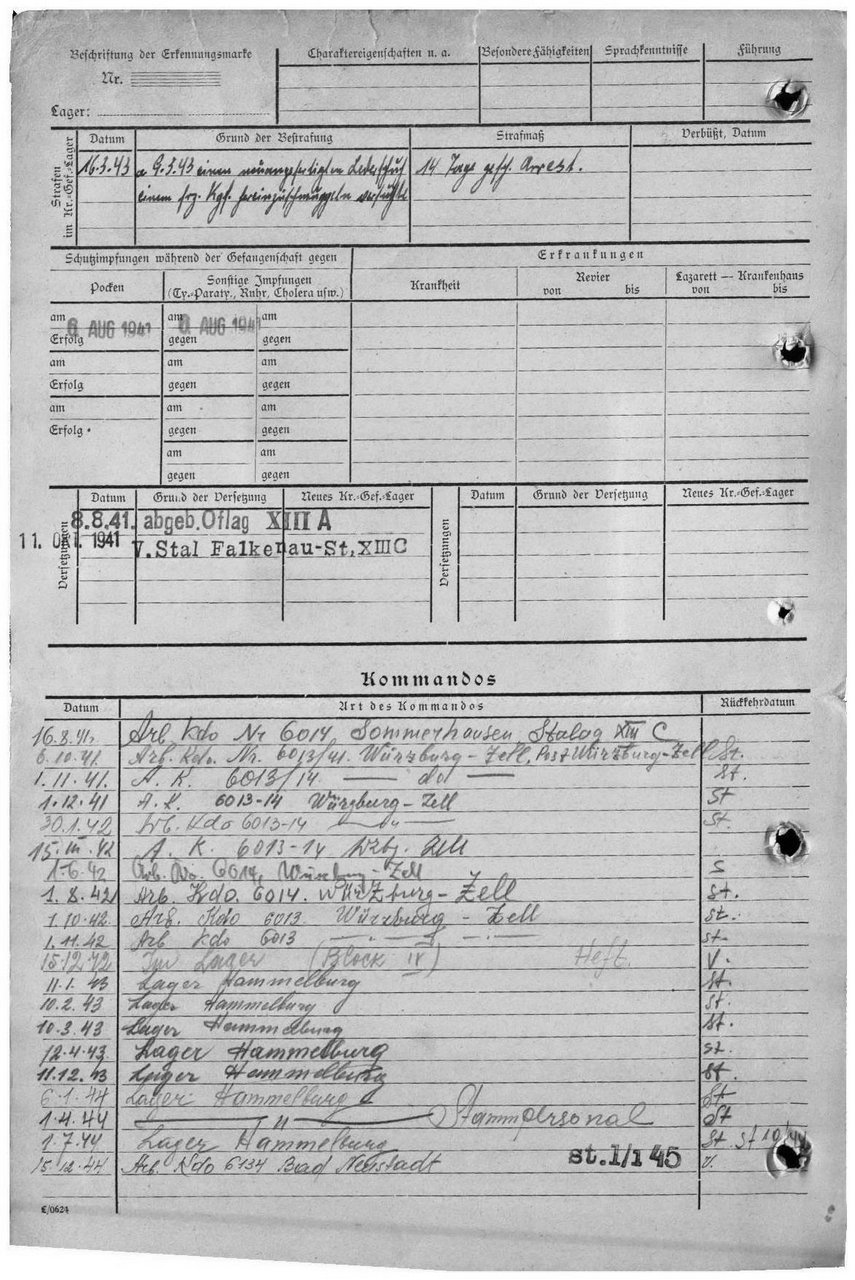 Beschriftung der Erkennungsmarke
Nr.
Lager:
Charaktereigenschaften u. a.
Besondere Fähigkeiten
Sprachkenntnisse
Führung
Strafen im Kr.-Gef.-Lager
Datum
Grund der Bestrafung
Strafmaß
Verbüßt, Datum
16.3.43
a 9.3.43 einen neuangefertigten Lederschuh
14 Tage gesch. Arrest.
einem frz. Kgf. hereinzuschmuggeln versuchte
Schutzimpfungen während der Gefangenschaft gegen
Erkrankungen
Pocken
Sonstige Impfungen
(Ty.-Paraty., Ruhr, Cholera usw.)
Krankheit
Revier
von bis
Lazarett — Krankenhaus
von bis
am 6 AUG 1941
am 6 AUG 1941
am
Erfolg
gegen
gegen
am
am
am
Erfolg
gegen
gegen
am
am
am
Erfolg
gegen
gegen
am
am
gegen
gegen
Versetzungen
Datum
Grund der Versetzung
Neues Kr.-Gef.-Lager
Versetzungen
Datum
Grund der Versetzung
Neues Kr.-Gef.-Lager
8.8.41. abgeb. Oflag XIII A
11. OKT. 1941 V.Stal Falkenau-St, XIII C
Kommandos
Datum
Art des Kommandos
Rückkehrdatum
16.8.41. Arb Kdo Nr 6014 Sommerhausen Stalag XIII C
6.10.41. Arb. Kdo. Nr. 6013/41. Würzburg - Zell, Post Würzburg-Zell St.
1.11.41. A. K. 6013/14 — do — St.
1.12.41 A. K. 6013-14 Würzburg - Zell St
30.1.42 Arb. Kdo 6013-14 — " — St.
15.III.42 A. K. 6013-14 Wzbg. Zell
1.6.42 Arb. No. 6014, Würzburg - Zell S
1.8.42 Arb. Kdo. 6014. Würzburg - Zell St.
1.10.42. Arb. Kdo 6013 Würzburg - Zell St.
1.11.42 Arb Kdo 6013 St.
15.12.42 Im Lager (Block IV) Heft. V.
11.1.43 Lager Hammelburg St.
10.2.43 Lager Hammelburg St.
10.3.43 Lager Hammelburg St.
12.4.43 Lager Hammelburg St.
11.12.43 Lager Hammelburg St.
6.1.44 Lager Hammelburg St
1.4.44 — " — Stammpersonal St
1.7.44 Lager Hammelburg St St 10/44
15.12.44 Arb. Kdo 6134 Bad Neustadt st.1/1 45 V.
E/0624